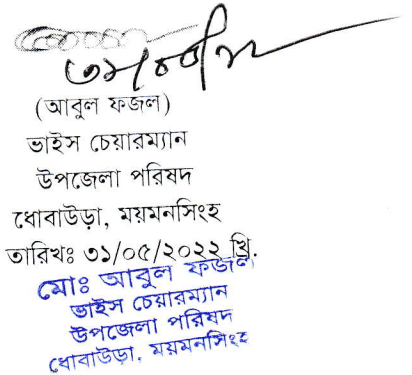 (আবুল ফজল)
ভাইস চেয়ারম্যান
উপজেলা পরিষদ
ধোবাউড়া, ময়মনসিংহ
তারিখঃ ৩১/০৫/২০২২ খ্রি.
মোঃ আবুল ফজল
ভাইস চেয়ারম্যান
উপজেলা পরিষদ
ধোবাউড়া, ময়মনসিংহ